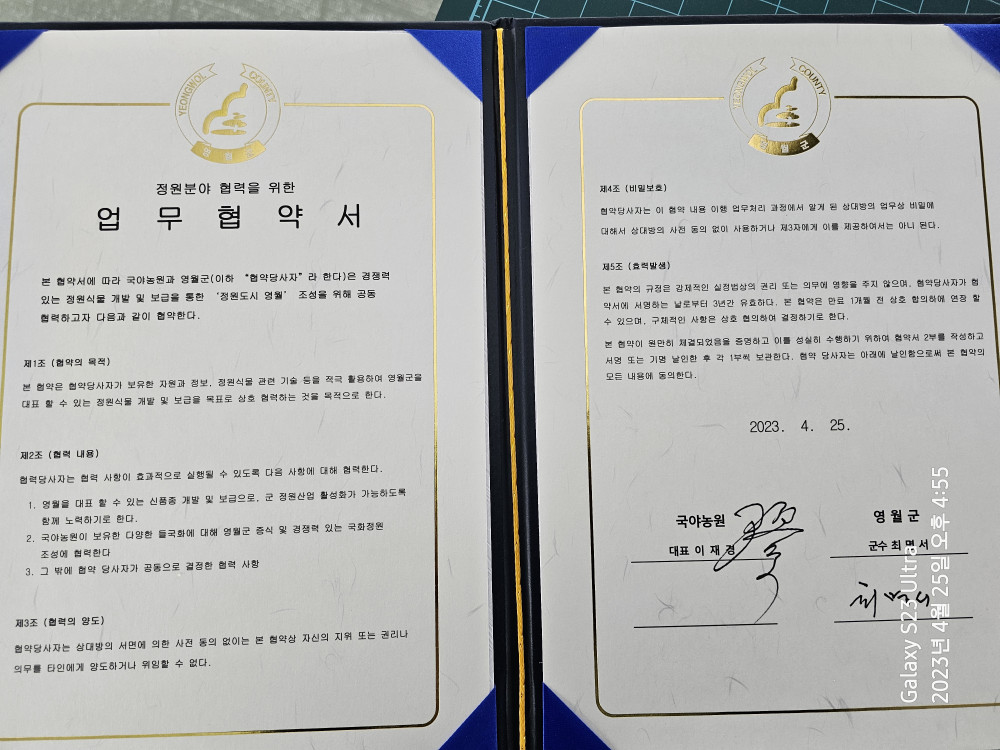 YEONGWOL COUNTY
영월군
정원분야 협력을 위한
업 무 협 약 서
본 협약서에 따라 국야농원과 영월군(이하 “협약당사자”라 한다)은 경쟁력
있는 정원식물 개발 및 보급을 통한 ‘정원도시 영월’ 조성을 위해 공동
협력하고자 다음과 같이 협약한다.
제1조 (협약의 목적)
본 협약은 협약당사자가 보유한 자원과 정보, 정원식물 관련 기술 등을 적극 활용하여 영월군을
대표 할 수 있는 정원식물 개발 및 보급을 목표로 상호 협력하는 것을 목적으로 한다.
제2조 (협력 내용)
협력당사자는 협력 사항이 효과적으로 실행될 수 있도록 다음 사항에 대해 협력한다.
1. 영월을 대표 할 수 있는 신품종 개발 및 보급으로, 군 정원산업 활성화가 가능하도록
함께 노력하기로 한다.
2. 국야농원이 보유한 다양한 들국화에 대해 영월군 증식 및 경쟁력 있는 국화정원
조성에 협력한다
3. 그 밖에 협약 당사자가 공동으로 결정한 협력 사항
제3조 (협력의 양도)
협약당사자는 상대방의 서면에 의한 사전 동의 없이는 본 협약상 자신의 지위 또는 권리나
의무를 타인에게 양도하거나 위임할 수 없다.
YEONGWOL COUNTY
영월군
제4조 (비밀보호)
협약당사자는 이 협약 내용 이행 업무처리 과정에서 알게 된 상대방의 업무상 비밀에
대해서 상대방의 사전 동의 없이 사용하거나 제3자에게 이를 제공하여서는 아니 된다.
제5조 (효력발생)
본 협약의 규정은 강제적인 실정법상의 권리 또는 의무에 영향을 주지 않으며, 협약당사자가 협
약서에 서명하는 날로부터 3년간 유효하다. 본 협약은 만료 1개월 전 상호 합의하에 연장 할
수 있으며, 구체적인 사항은 상호 협의하여 결정하기로 한다.
본 협약이 원만히 체결되었음을 증명하고 이를 성실히 수행하기 위하여 협약서 2부를 작성하고
서명 또는 기명 날인한 후 각 1부씩 보관한다. 협약 당사자는 아래에 날인함으로써 본 협약의
모든 내용에 동의한다.
2023. 4. 25.
국야농원
대표 이 재 경
영 월 군
군수 최 명 서
최명서
Galaxy S23 Ultra
2023년 4월 25일 오후 4:55